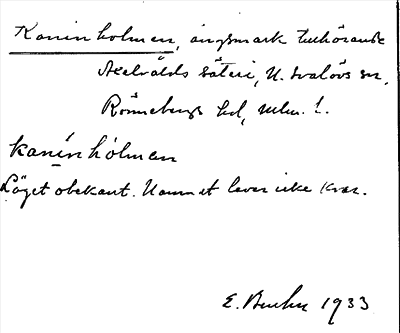 Kaninholmen, ängsmark tillhörande
Axelvolds säteri, N. Svalövs sn,
Rönnebergs hd, Mlm. l.
kanínhòlmen
Läget obekant. Namnet lever icke kvar.
E. 1933